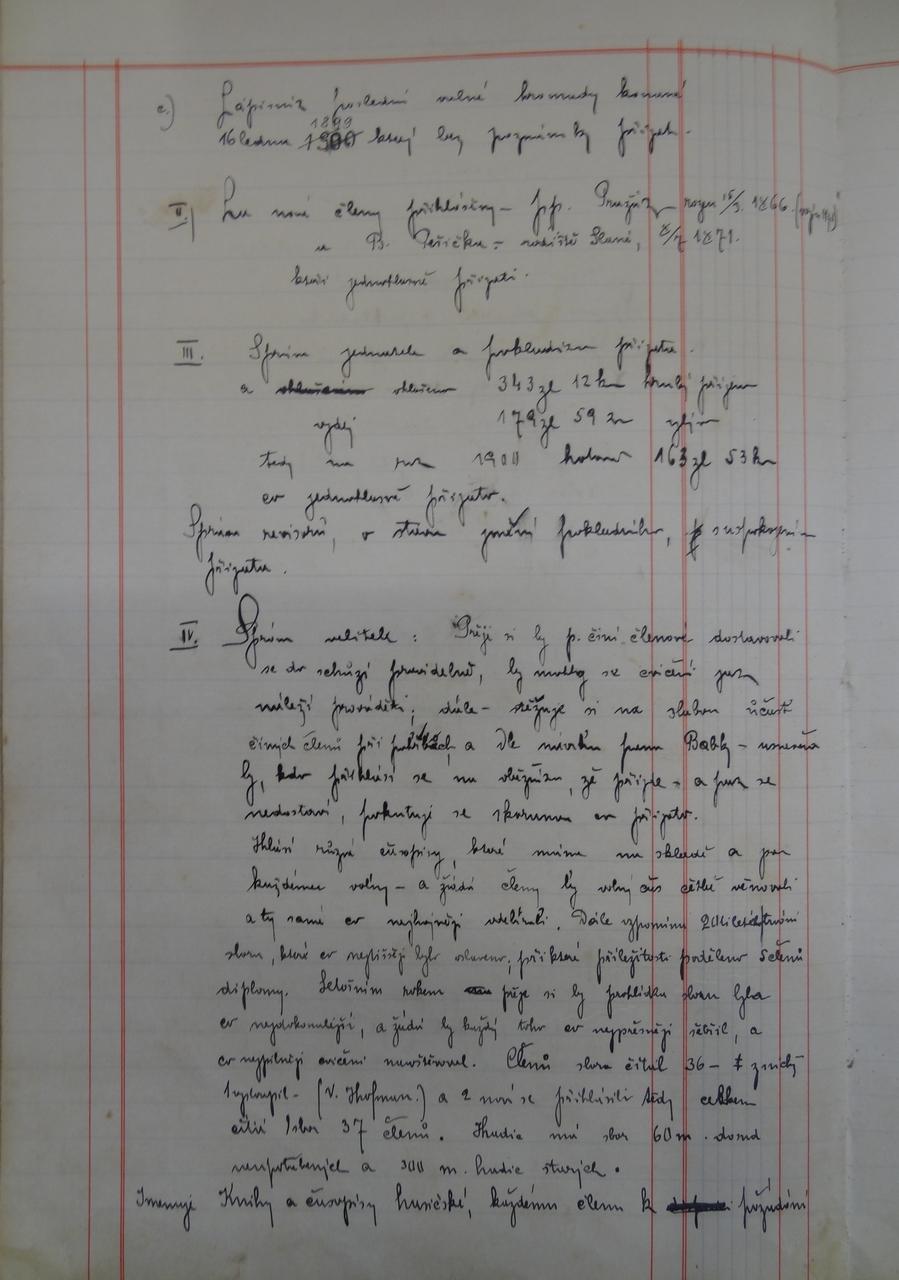 c.) Zápisník poslední valné hromady konané
16 ledna 1899 který bez poznámky přijat.
II.) Za nové členy přihlášeny - pp. rozen 15/3. 1866.
a B. Peřička - rodiště Slané, 8/7 1871.
kteří jednohlasně přijati.
III. Správa jednatele a pokladníka přijata.
a shledáno 343 zl 12 kr hrubý příjem
výdej 179 zl 59 kr
tedy na rok 1900 hotově 163 zl 53 kr
co jednohlasně přijato.
Správa revisorů, o stavu jmění pokladního, s uspokojením
přijata.
IV. Správa velitele: Přeje si by p. činí členové dostavovali
se do schůzí pravidelně, by mohlo se cvičení jak
náleží prováděti; dále - stěžuje si na slabou účast
činých členů při a dle návrhu pana Babky - usnesena
by, kdo přihlásí se na že přijde - a pak se
nedostaví, pokutuje se skorunou co přijato.
Hlásí různé časopisy, které máme na skladě a jsou
každému volny - a žádá členy by volný čas četbě věnovali
a ty samé co nejhojněji odebírali. Dále vzpomíná 20tiletého trvání
sboru, které co nejtišeji bylo oslaveno, při které příležitosti poděleno 5 členů
diplomy. Letošním rokem přeje si by prohlídka sboru byla
co nejdokonalejší, a žádá by každý toho co nejpřesněji šetřil, a
co nejpilněji cvičení navštěvoval. Členů sboru čítal 36 - z nichž
1 vystoupil - (V. Hofman.) a 2 noví se přihlásili tedy celkem
čítá sbor 37 členů. Hadic má sbor 60 m. dosud
neupotřebených a 300 m. hadic starých.
Jmenuje Knihy a časopisy hasičské, každému členu k požádání